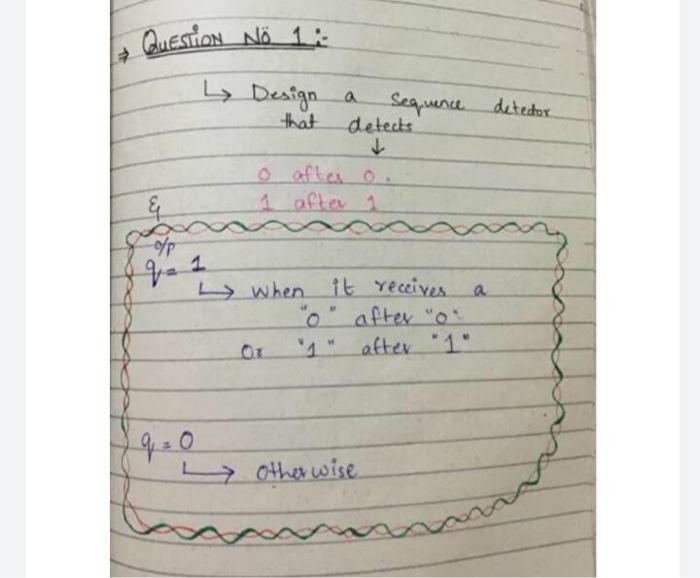 ⇒ QUESTION NO 1 :-
↳ Design a sequence detector
that detects
↓
0 after 0.
1 after 1
&
o/p
q = 1
↳ when it receives a
"0" after "0"
Or "1" after "1"
q = 0
↳ otherwise